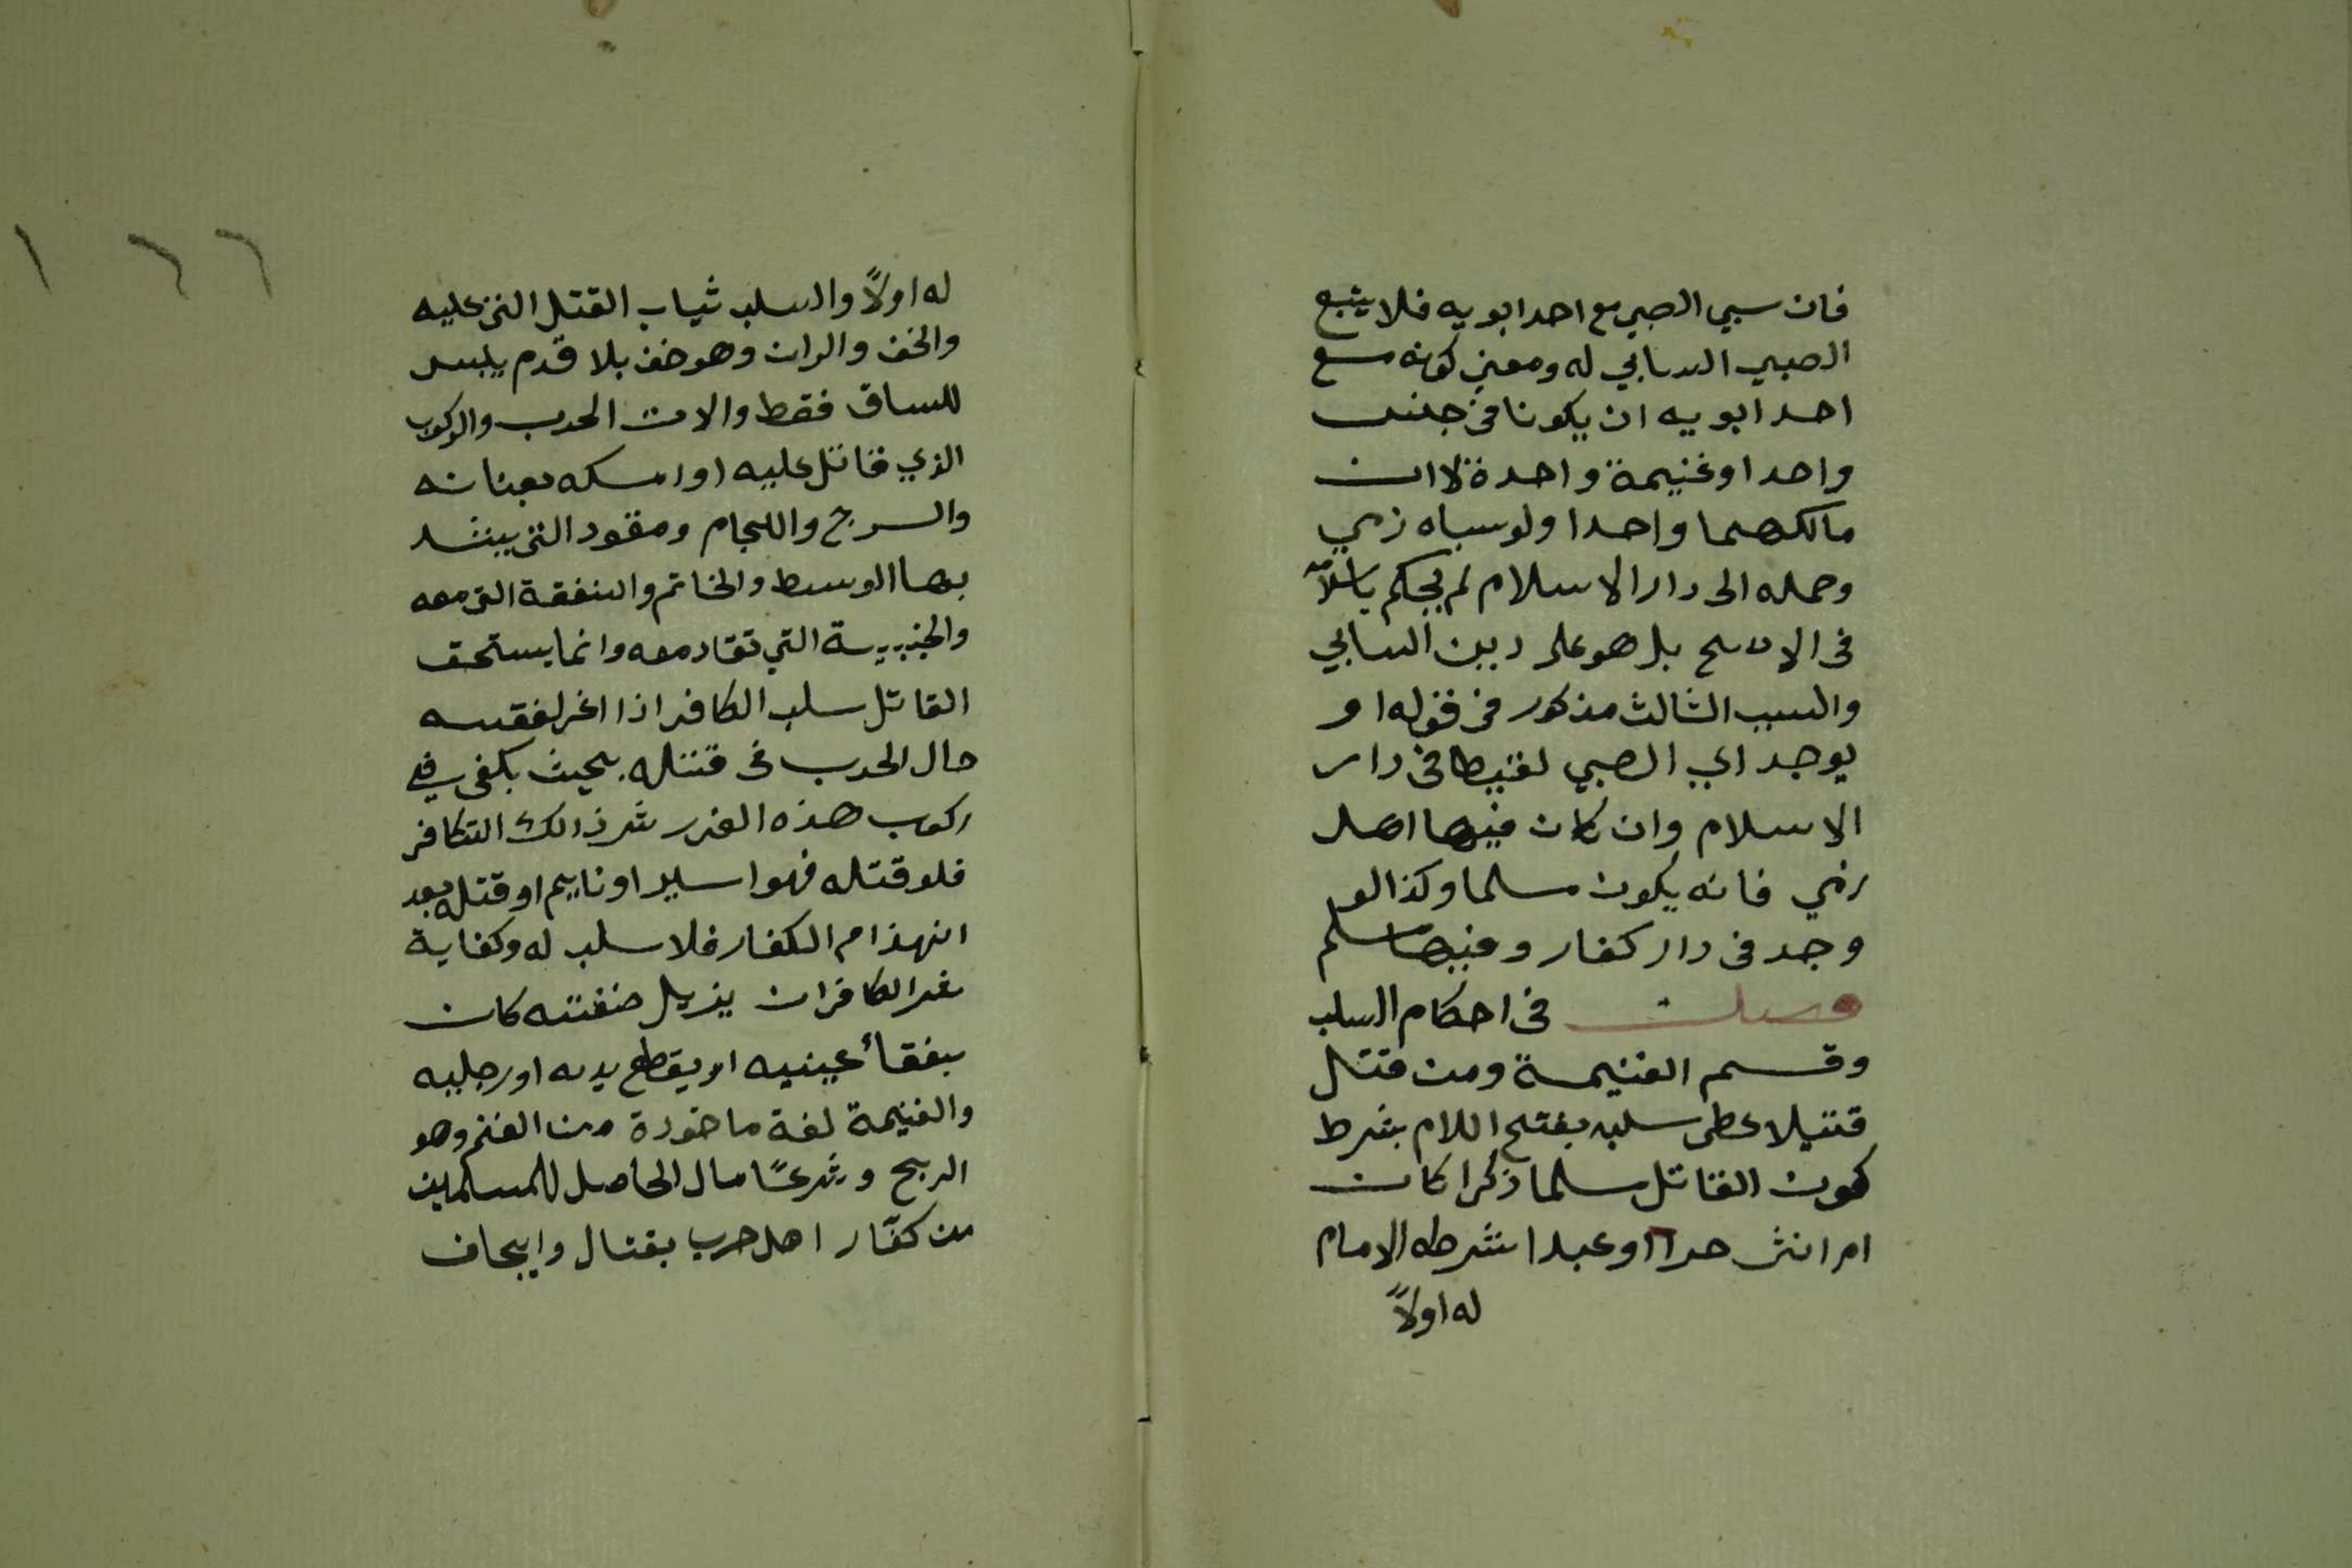 فان سبي الصبي مع احد ابويه فلا يتبع
الصبي السابي له ومعني كونه مع
احد ابويه ان يكونا في جلس
واحد او غنيمة واحدة لا ان
مالكهما واحدا ولو سباه زمي
وحمله الى دار الاسلام لم يحكم باسلامه
في الاصح بل هو على دين السابي
والسبب الثالث مذكور في قوله او
يوجد اي الصبي لقيطا في دار
الاسلام وان كان فيها اهل
زمي فانه يكون مسلما وكذا لو
وجد في دار كفار وفيها مسلم
فصل في احكام السلب
وقسم الغنيمة ومن قتل
قتيلا عطى سلبه بفتح اللام بشرط
كون القاتل مسلما ذكرا كان
ام انثى حرا او عبدا شرطه الامام
له اولاً
١٦٦
له اولاً والسلب ثياب القتل التي عليه
والخف والران وهو خف بلا قدم يلبس
للساق فقط والات الحرب والركوب
الذي قاتل عليه او امسكه بعنانه
والسرج واللجام ومقود التي يشد
بها الوسط والخاتم والنفقة التي معه
والجنيبة التي تقاد معه وانما يستحق
القاتل سلب الكافر اذا اغر لفقسه
حال الحرب في قتله بحيث يكفي في
ركوب هذه الغرر شر ذالك الكافر
فلو قتله فهو اسير او نايم او قتله بعد
انهذام الكفار فلا سلب له وكفاية
شر الكافر ان يزيل منفته كان
يفقأ عينيه او يقطع يديه او رجليه
والغنيمة لغة ماخودة من الغنم وهو
الربح وشرعًا مال الحاصل للمسلمين
من كفّار اهل حرب بقتال وايجاف